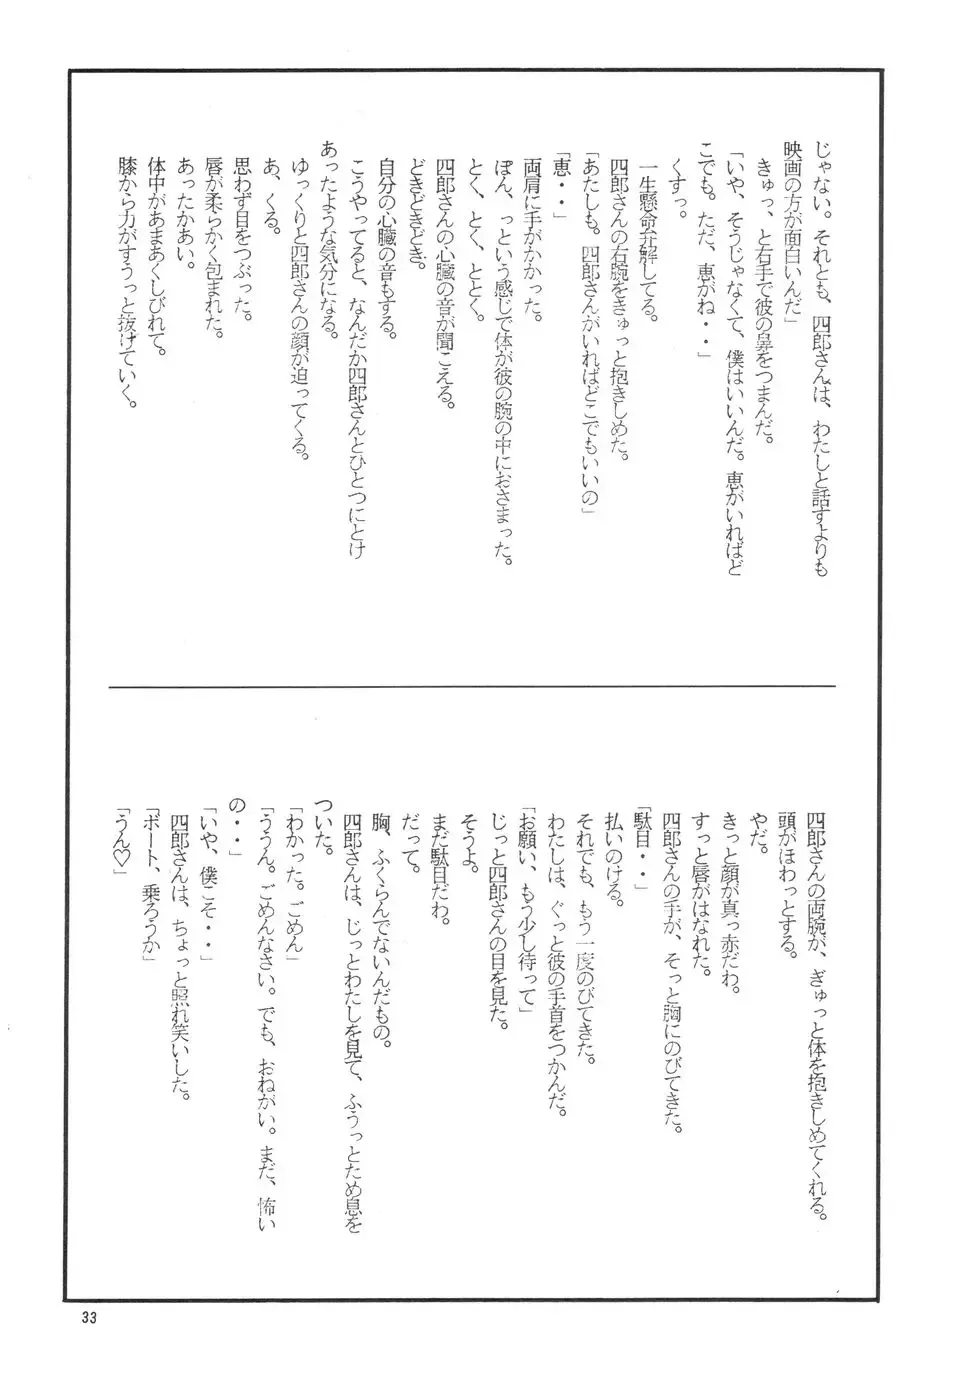 じゃない。それとも、四郎さんは、わたしと話すよりも
映画の方が面白いんだ」
きゅっ、と右手で彼の鼻をつまんだ。
「いや、そうじゃなくて、僕はいいんだ。恵がいればど
こでも。ただ、恵がね・・・」
くすっ。
一生懸命弁解してる。
四郎さんの右腕をきゅっと抱きしめた。
「あたしも。四郎さんがいればどこでもいいの」
「恵・・」
両肩に手がかかった。
ぽん、っという感じで体が彼の腕の中におさまった。
とく、とく、ととく。
四郎さんの心臓の音が聞こえる。
どきどきどき。
自分の心臓の音もする。
こうやってると、なんだか四郎さんとひとつにとけ
あったような気分になる。
ゆっくりと四郎さんの顔が迫ってくる。
あ、くる。
思わず目をつぶった。
唇が柔らかく包まれた。
あったかあい。
体中があまあくしびれて。
膝から力がすうっと抜けていく。
四郎さんの両腕が、ぎゅっと体を抱きしめてくれる。
頭がほわっとする。
やだ。
きっと顔が真っ赤だわ。
すっと唇がはなれた。
四郎さんの手が、そっと胸にのびてきた。
「駄目・・」
払いのける。
それでも、もう一度のびてきた。
わたしは、ぐっと彼の手首をつかんだ。
「お願い、もう少し待って」
じっと四郎さんの目を見た。
そうよ。
まだ駄目だわ。
だって。
胸、ふくらんでないんだもの。
四郎さんは、じっとわたしを見て、ふうっとため息を
ついた。
「わかった。ごめん」
「ううん。ごめんなさい。でも、おねがい。まだ、怖い
の・・」
「いや、僕こそ・・」
四郎さんは、ちょっと照れ笑いした。
「ボート、乗ろうか」
「うん♡」
33